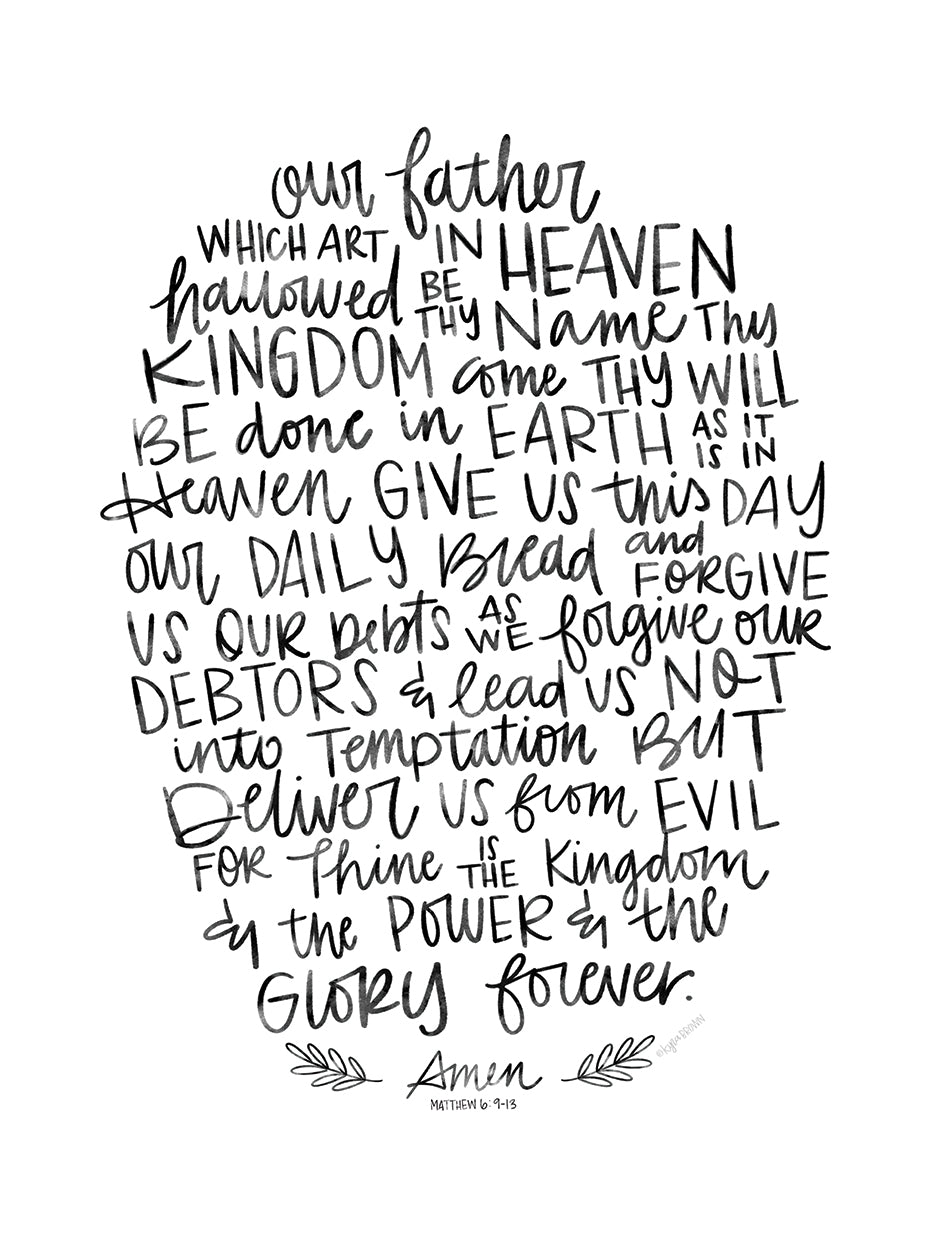 our father
WHICH ART IN HEAVEN
hallowed BE THY Name Thy
KINGDOM come THY WILL
BE done in EARTH AS IT IS IN
Heaven GIVE US this DAY
our DAILY Bread and FORGIVE
US OUR Debts AS WE forgive our
DEBTORS & lead US NOT
into Temptation BUT
Deliver US from EVIL
FOR Thine IS THE Kingdom
& the POWER & the
GLORY forever.
Amen
MATTHEW 6:9-13
©kylaBROWN